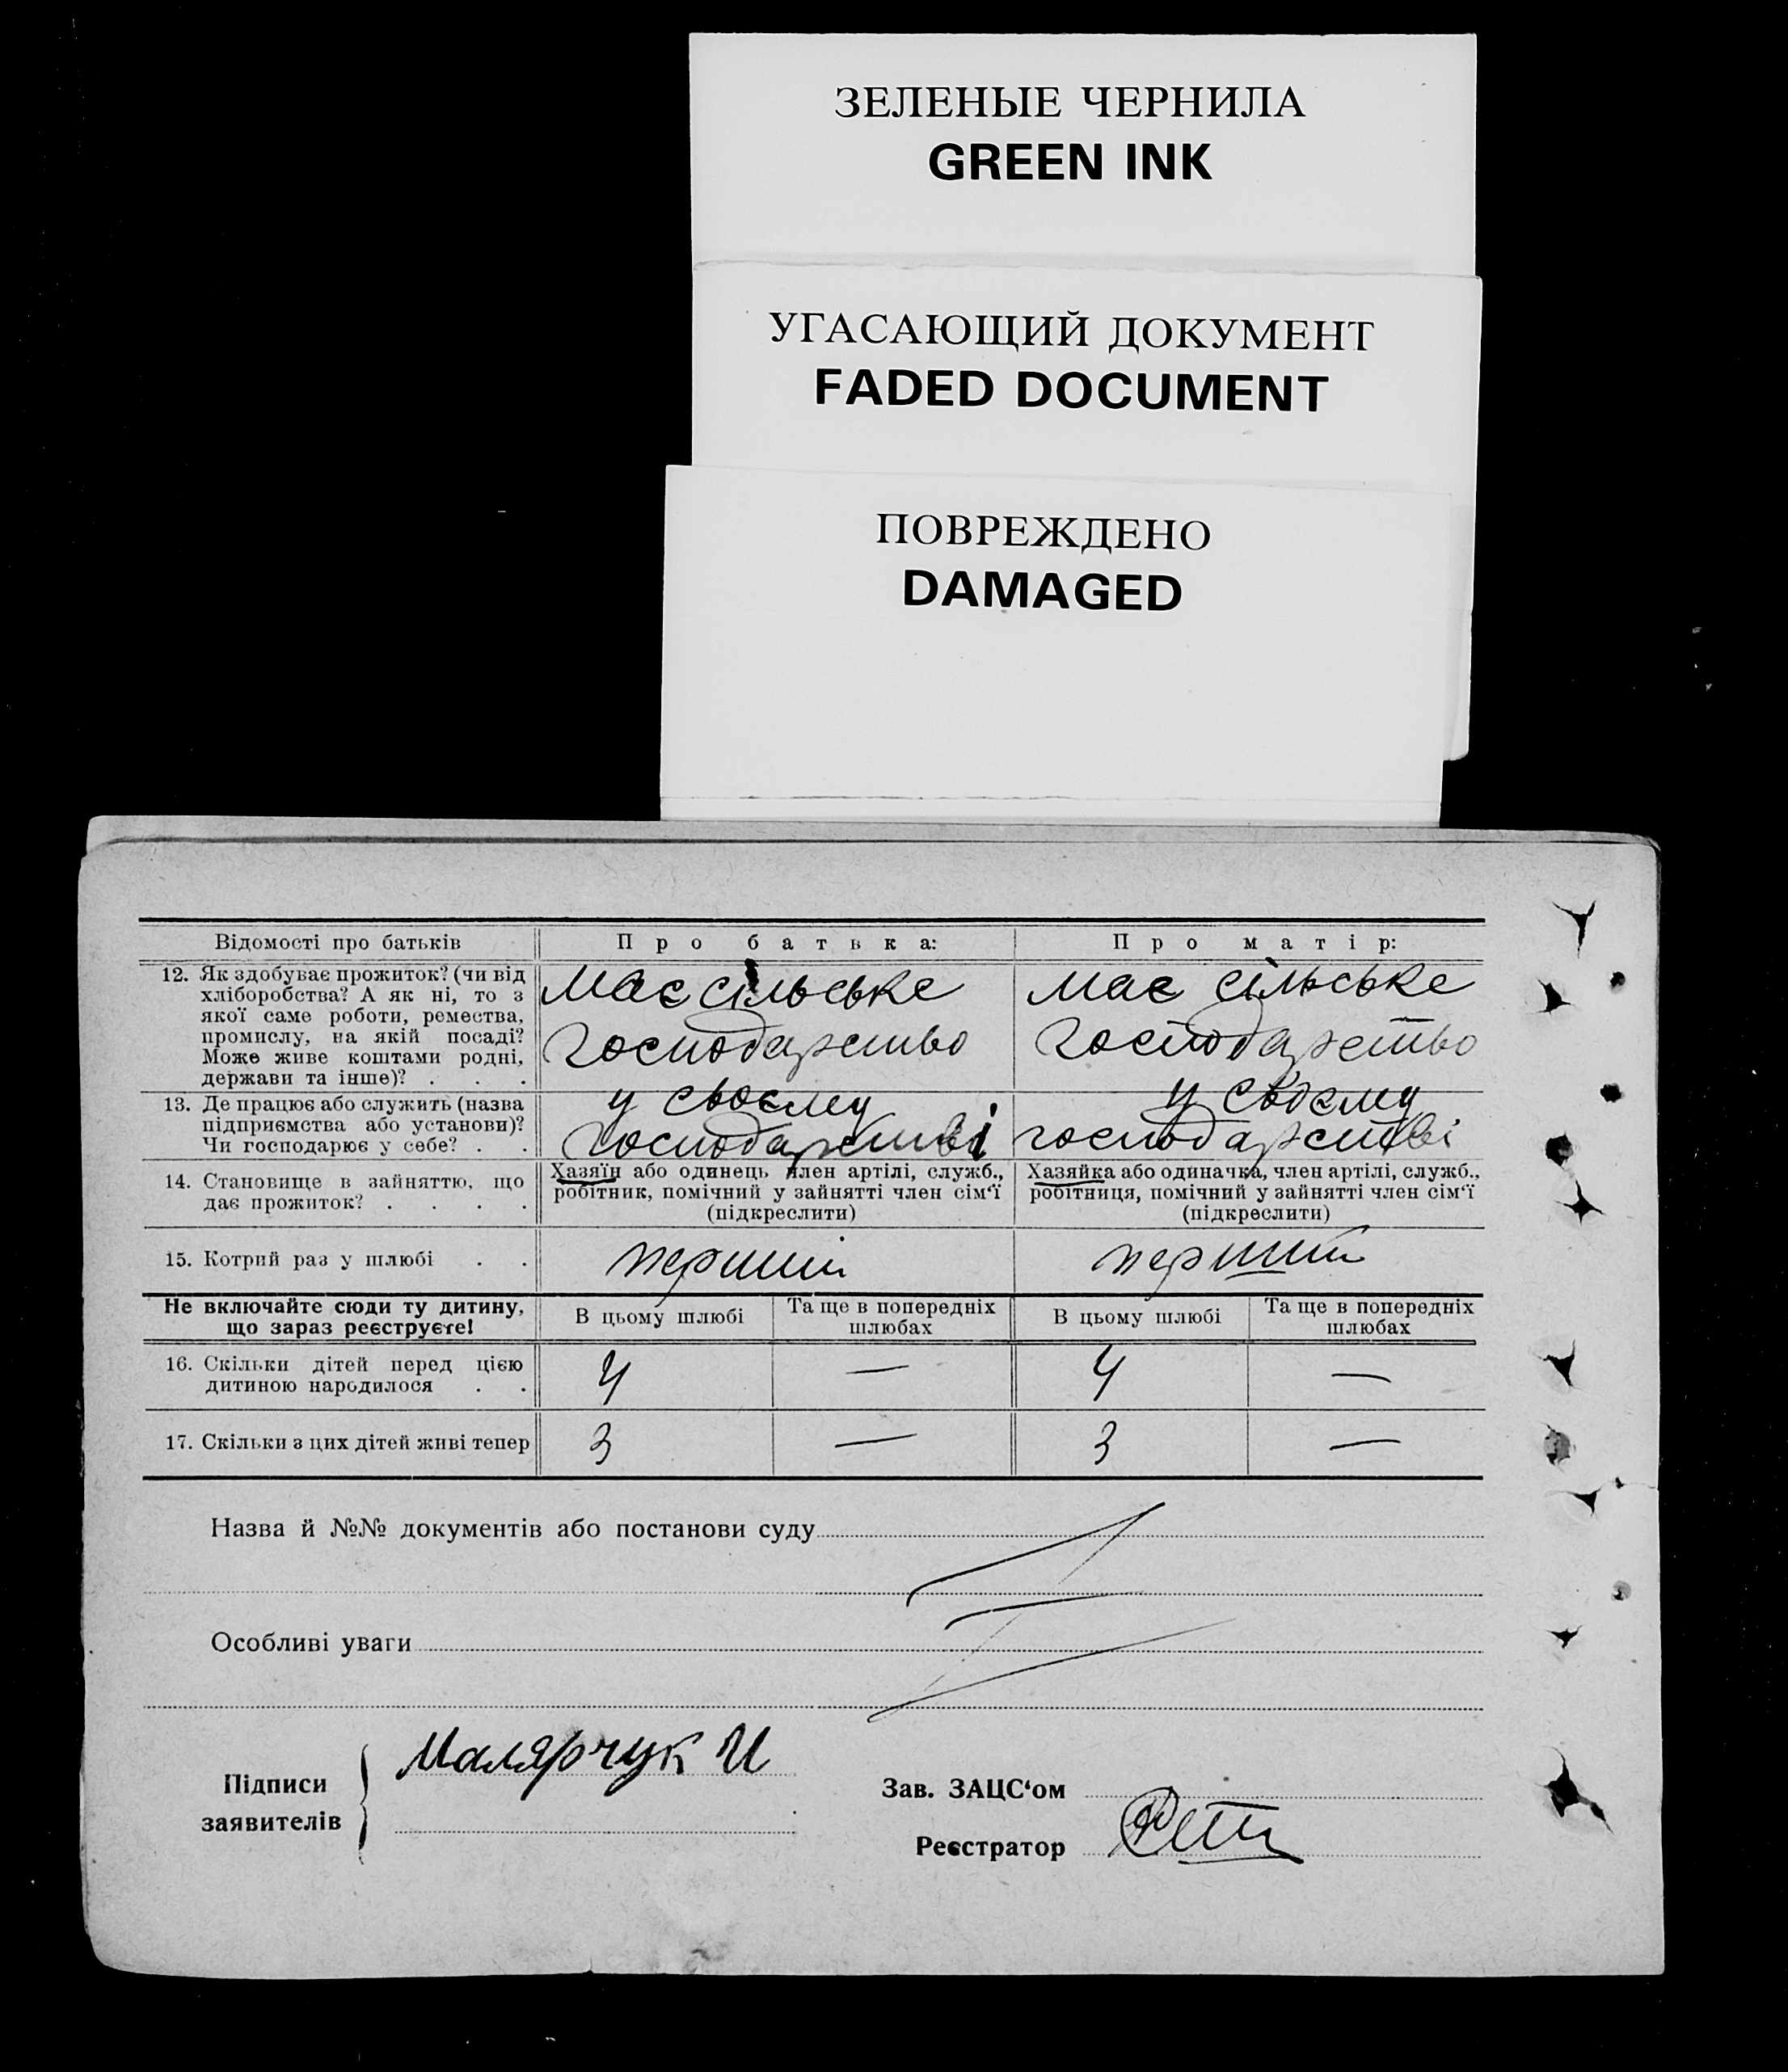 ЗЕЛЕНЫЕ ЧЕРНИЛА
GREEN INK
УГАСАЮЩИЙ ДОКУМЕНТ
FADED DOCUMENT
ПОВРЕЖДЕНО
DAMAGED
Відомості про батьків Про батька: Про матір:
12. Як здобуває прожиток? (чи від
хліборобства? А як ні, то з
якої саме роботи, ремества,
промислу, на якій посаді?
Може живе коштами родні,
держави та інше)? . . .
має сільське
господарство
має сільське
господарство
13. Де працює або служить (назва
підприємства або установи)?
Чи господарює у себе? . .
у своєму
господарстві
у своєму
господарстві
14. Становище в зайняттю, що
дає прожиток? . . . .
Хазяїн або одинець член артілі, служб.,
робітник, помічний у зайнятті член сім'ї
(підкреслити)
Хазяйка або одиначка, член артілі, служб.,
робітниця, помічний у зайнятті член сім'ї
(підкреслити)
15. Котрий раз у шлюбі . . перший перший
Не включайте сюди ту дитину,
що зараз реєструєте!
В цьому шлюбі
Та ще в попередніх
шлюбах
В цьому шлюбі
Та ще в попередніх
шлюбах
16. Скільки дітей перед цією
дитиною народилося . .
4 — 4 —
17. Скільки з цих дітей живі тепер 3 — 3 —
Назва й №№ документів або постанови суду
Особливі уваги
Підписи
заявителів
Малярчук И
Зав. ЗАЦС'ом
Реєстратор